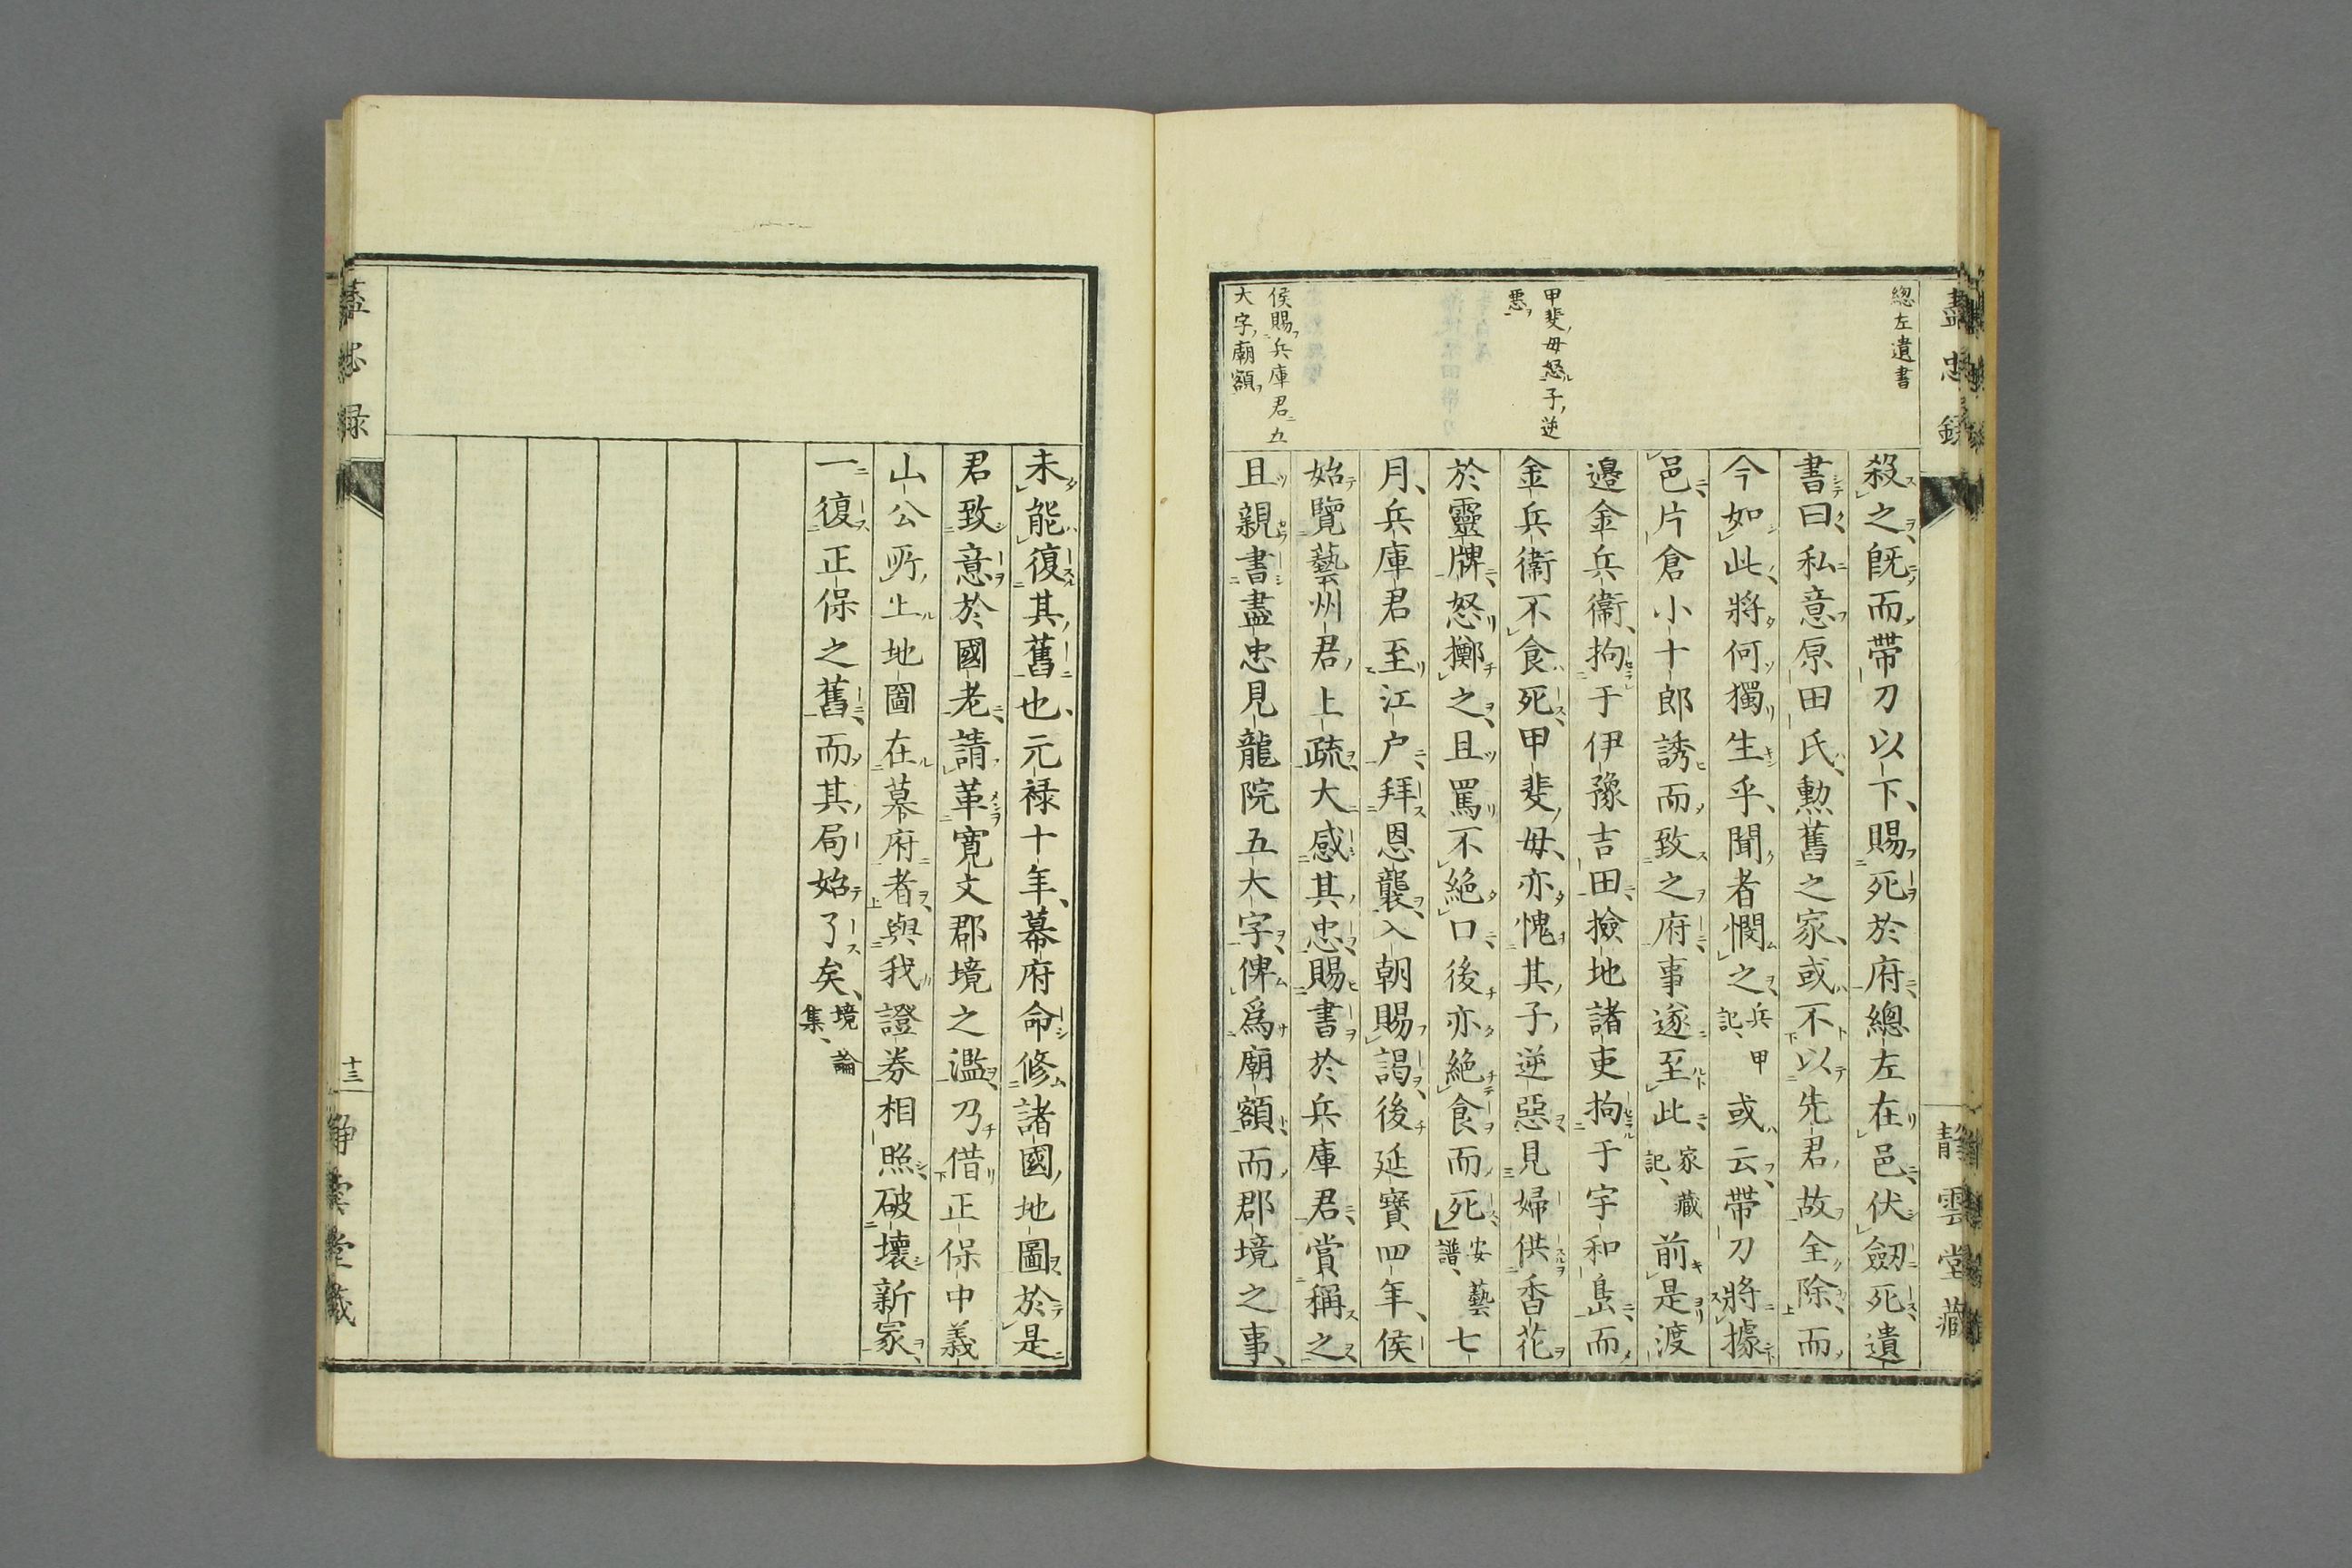 盡忠録
靜雲堂藏
總左遺書
殺之既而帶刀以下賜死於府總左在邑伏劔死遺
書曰私意原田氏勲舊之家或不以先君故全除而
今如此將何獨生乎聞者憫之兵甲記或云帶刀將據
邑片倉小十郎誘而致之府事遂至此家藏記前是渡
邉金兵衛拘于伊豫吉田撿地諸吏拘于宇和島而
甲斐母怒子逆
惡
金兵衛不食死甲斐母亦愧其子逆惡見婦供香花
於靈牌怒擲之且罵不絶口後亦絶食而死安藝譜七
月兵庫君至江户拜恩襲入朝賜謁後延寶四年侯
始覽藝州君上疏大感其忠賜書於兵庫君賞稱之
侯賜兵庫君五
大字廟額
且親書盡忠見龍院五大字俾爲廟額而郡境之事
未能復其舊也元禄十年幕府命修諸國地圖於是
君致意於國老請革寛文郡境之濫乃借正保中義
山公所上地圖在幕府者與我證券相照破壞新冢
一復正保之舊而其局始了矣境論集
盡忠録
十三
靜雲堂藏